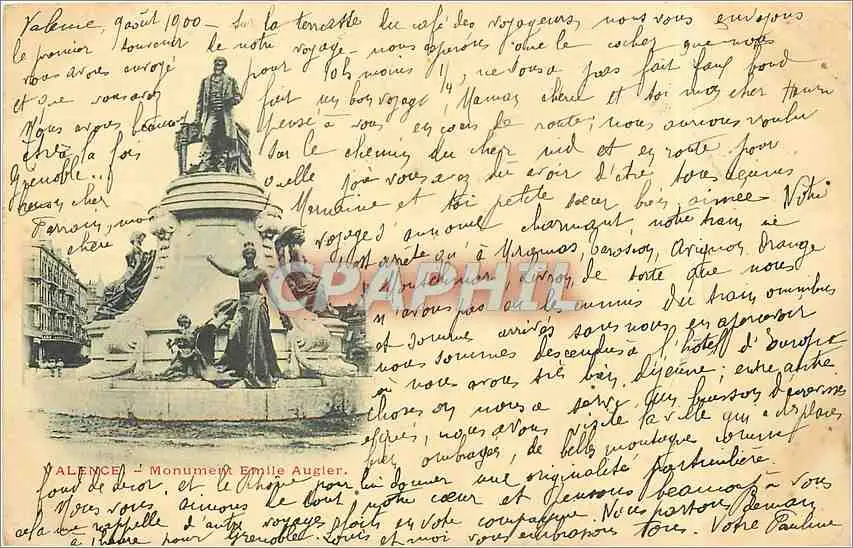 Valence, 9 août 1900 – Sur la terrasse du café des voyageurs, nous vous envoyons
le premier souvenir de notre voyage – nous espérons que le cocher que nous
vous avons envoyé pour 10h moins 1/4, ne vous a pas fait faux bond
et que vous avez fait un bon voyage, Maman chérie et toi mon cher Henri
Nous avons beaucoup pensé à vous en cours de route, nous aurions voulu
être à la fois sur le chemin du cher nid et en route pour
Grenoble.. quelle joie vous avez dû avoir d'être tous réunis
mon cher Marraine et toi petite soeur bien aimée. Notre
Parrain, ma voyage s'annonce charmant, notre train ne
chère s'est arrêté qu'à Avignon, Orange
Montélimar, Livron, de sorte que nous
n'avons pas eu les ennuis du train omnibus
et sommes arrivés sans nous en apercevoir
nous sommes descendus à l'hôtel d'Europe
où nous avons très bien déjeuné; entre autre
choses on nous a servi des
nous avons visité la ville qui a des places
ombragées, de belles montagnes comme
VALENCE. – Monument Emile Augier.
fond de décor, et le Rhône pour lui donner une originalité particulière
Nous vous aimons de tout notre cœur et pensons beaucoup à vous
cela me rappelle d'autres voyages faits en votre compagnie. Nous partons demain
à heure pour Grenoble. Louis et moi vous embrassons tous. Votre Pauline
CPAPHIL